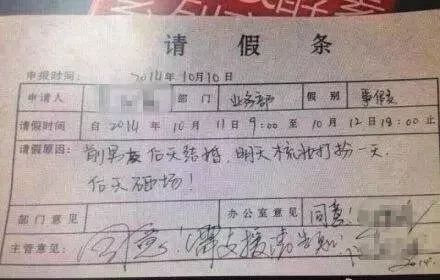 请假条
申报时间： 2014年10月10日
申请人 部门 业务部 假别 事假
请假时间 自 2014 年 10 月 11 日 9:00 至 10 月 12 日 18:00 止
请假原因： 前男友后天结婚，明天梳妆打扮一天，
后天砸场！
部门意见 办公室意见 同意！
主管意见： 同意！需支援请告知！
2014.